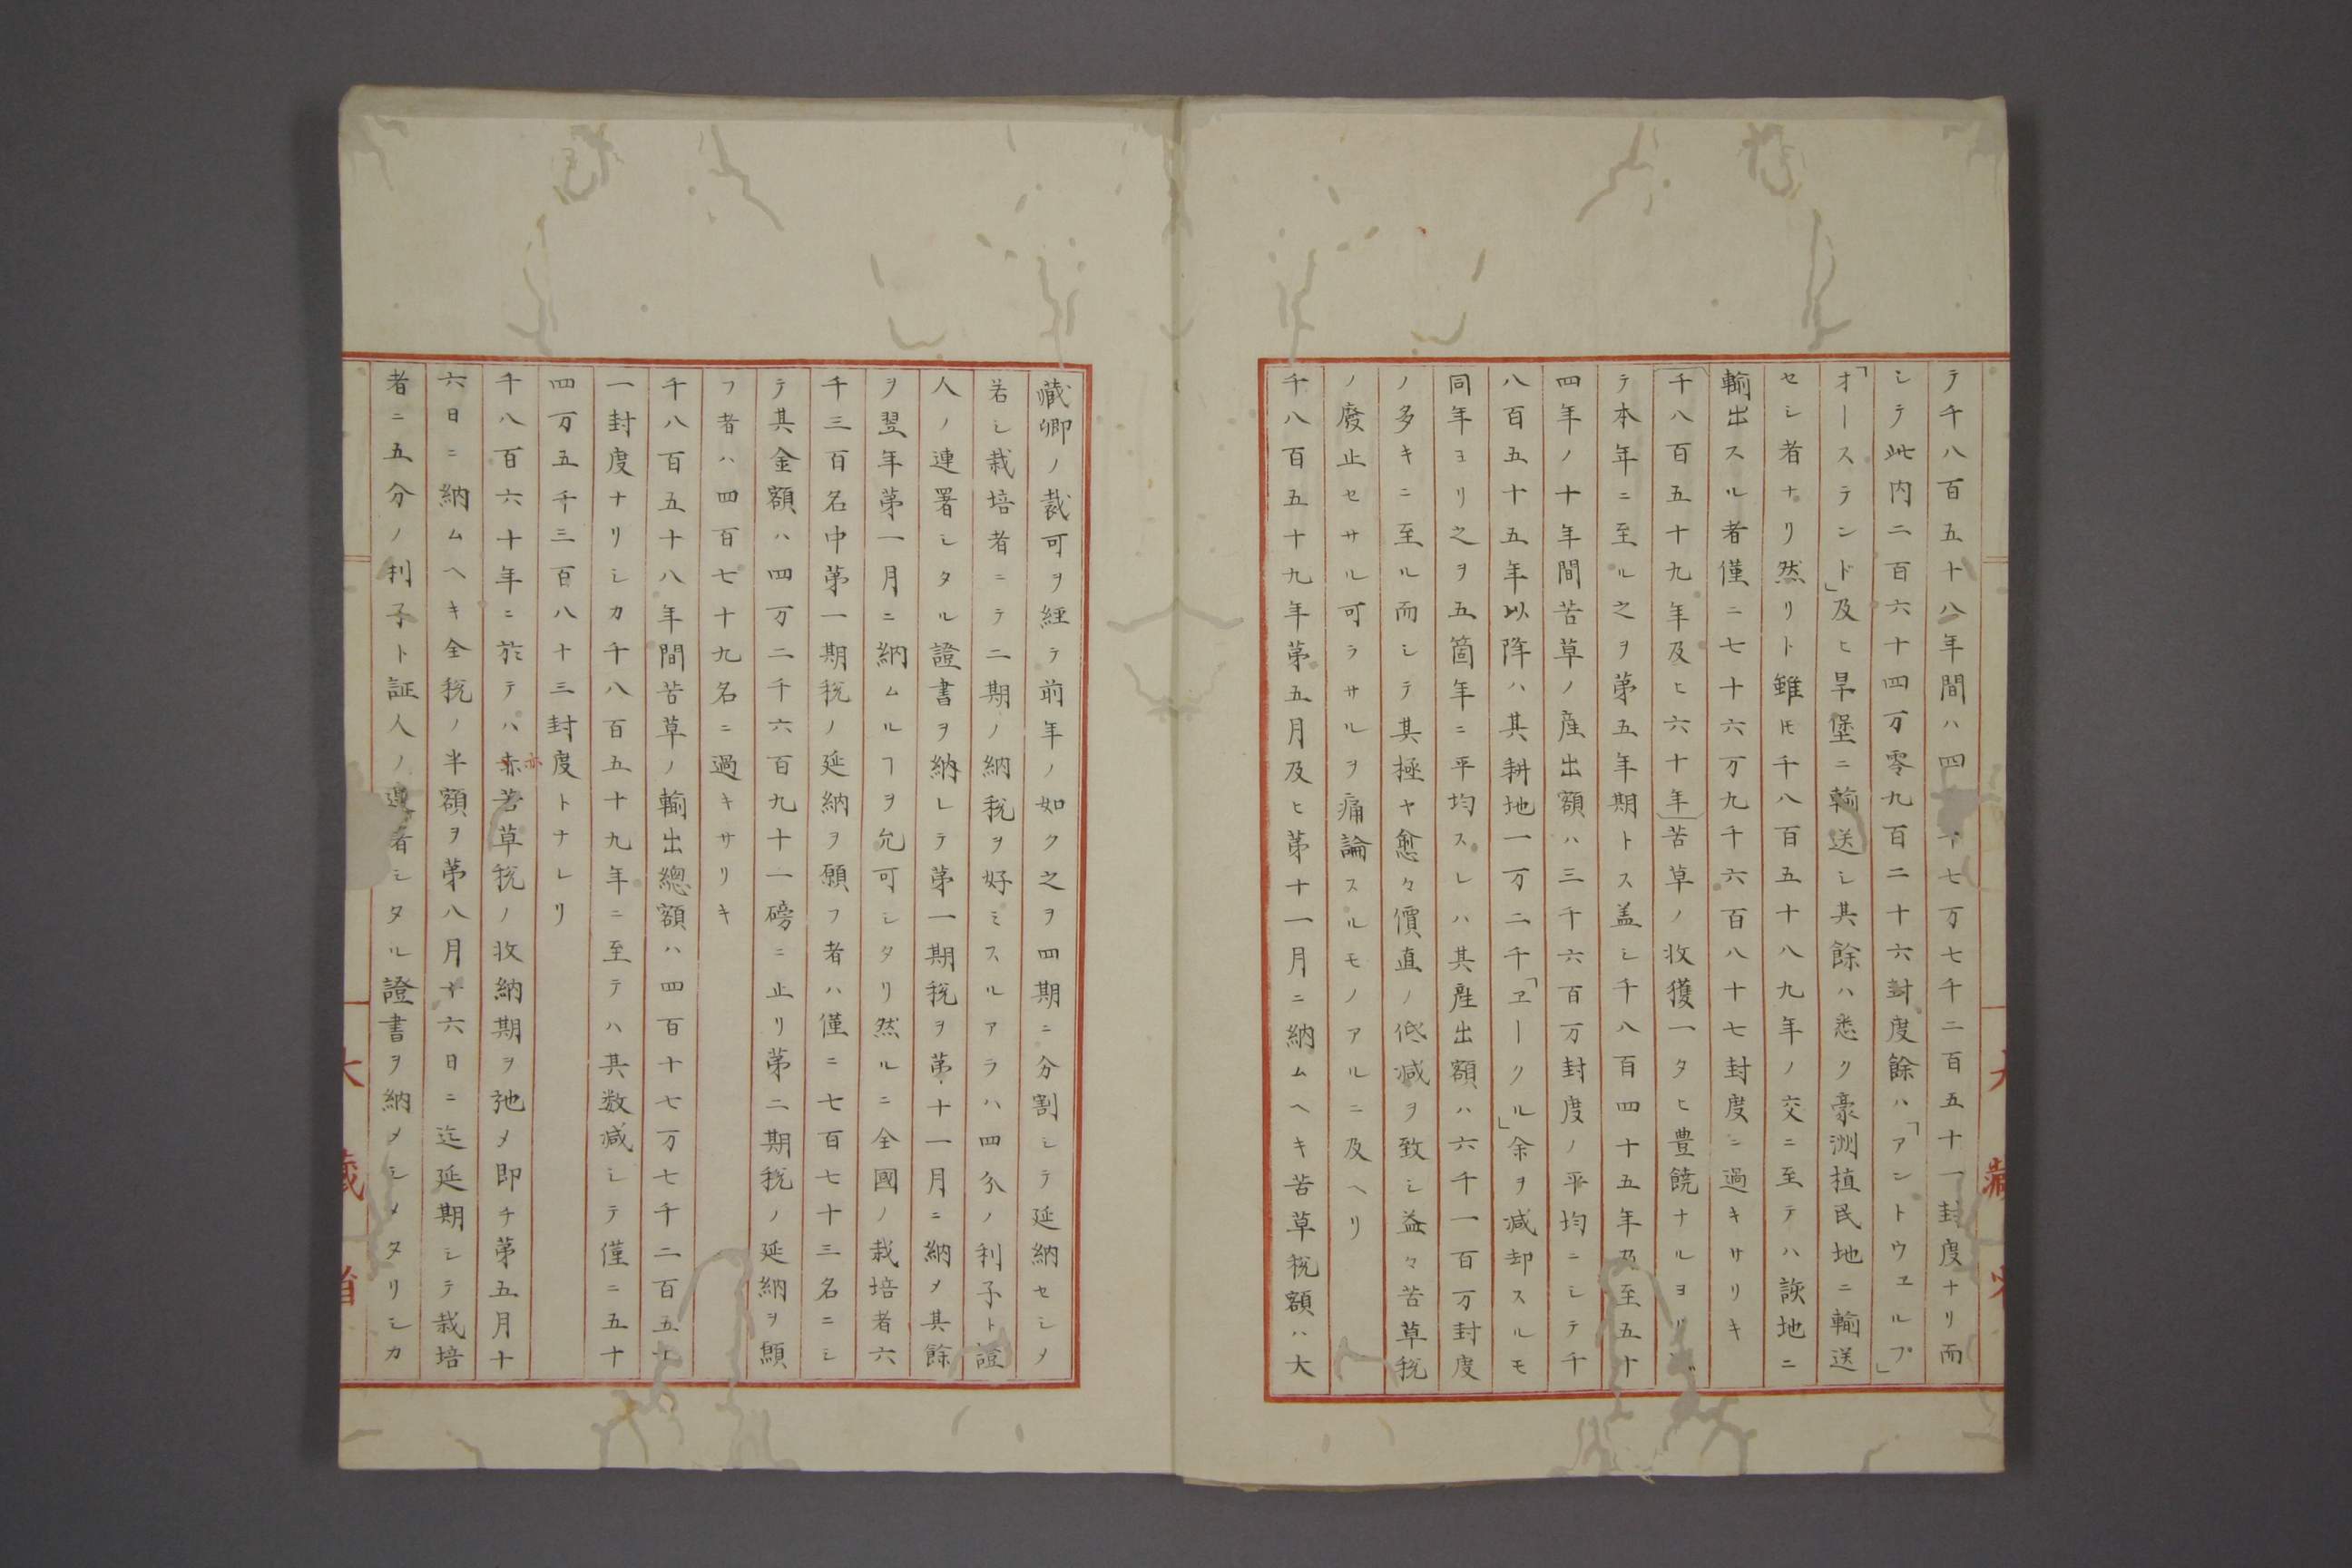 テ千八百五十八年間ハ四十七万七千二百五十一封度ナリ而
シテ此内二百六十四万零九百二十六封度餘ハ「アントウヱルプ」
「オーステンド」及ヒ旱堡ニ輸送シ其餘ハ悉ク豪洲植民地ニ輸送
セシ者ナリ然リト雖トモ千八百五十八九年ノ交ニ至テハ該地ニ
輸出スル者僅ニ七十六万九千六百八十七封度ニ過キサリキ
千八百五十九年及ヒ六十年苦草ノ收獲一タヒ豊饒ナルヨリ
テ本年ニ至ル之ヲ第五年期トス盖シ千八百四十五年乃至五十
四年ノ十年間苦草ノ産出額ハ三千六百万封度ノ平均ニシテ千
八百五十五年以降ハ其耕地一万二千「ヱークル」余ヲ減却スルモ
同年ヨリ之ヲ五箇年ニ平均スレハ其産出額ハ六千一百万封度
ノ多キニ至ル而シテ其極ヤ愈々價直ノ低減ヲ致シ益々苦草税
ノ廢止セサル可ラサルヲ痛論スルモノアルニ及ヘリ
千八百五十九年第五月及ヒ第十一月ニ納ムヘキ苦草税額ハ大
藏卿ノ裁可ヲ経テ前年ノ如ク之ヲ四期ニ分割シテ延納セシメ
若シ栽培者ニテ二期ノ納税ヲ好ミスルアラハ四分ノ利子ト證
人ノ連署シタル證書ヲ納レテ第一期税ヲ第十一月ニ納メ其餘
ヲ翌年第一月ニ納ムルヿヲ允可シタリ然ルニ全國ノ栽培者六
千三百名中第一期税ノ延納ヲ願フ者ハ僅ニ七百七十三名ニシ
テ其金額ハ四万二千六百九十一磅ニ止リ第二期税ノ延納ヲ願
フ者ハ四百七十九名ニ過キサリキ
千八百五十八年間苦草ノ輸出總額ハ四百十七万七千二百五十
一封度ナリシカ千八百五十九年ニ至テハ其数減シテ僅ニ五十
四万五千三百八十三封度トナレリ
千八百六十年ニ於テハ亦苦草税ノ收納期ヲ弛メ即チ第五月十
六日ニ納ムヘキ全税ノ半額ヲ第八月十六日ニ迄延期シテ栽培
者ニ五分ノ利子ト証人ノ連署シタル證書ヲ納メシメタリシカ
大藏省